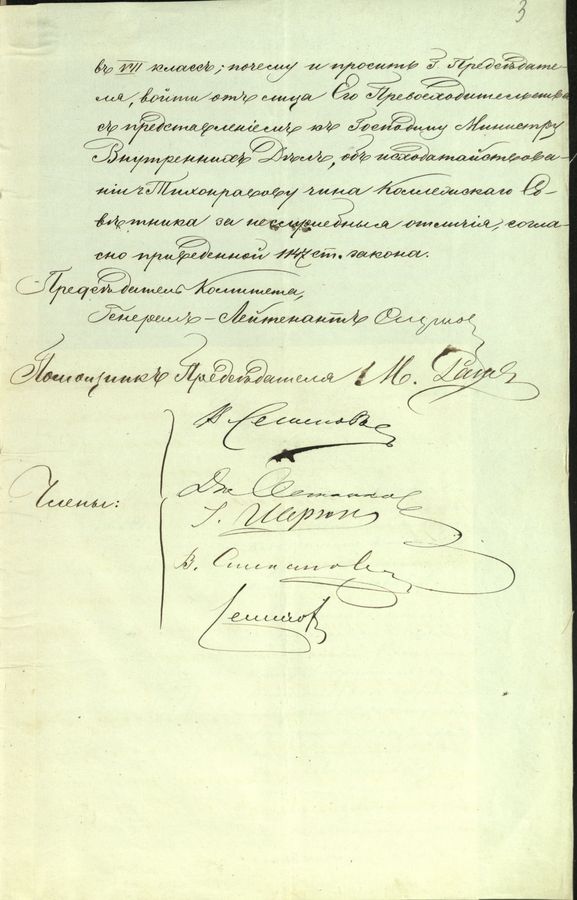 3
въ VII классѣ; почему и проситъ Г. Предсѣдате-
ля, войти отъ лица Его Превосходительства
съ представленіемъ къ Господину Министру
Внутреннихъ Дѣлъ, объ исходатайствова-
ніи Тихонравову чина Коллежскаго Со-
вѣтника за неслужебныя отличія, соглас-
но приведенной 1147 ст. закона.
Предсѣдатель Комитета,
Генералъ-Лейтенантъ
Помощникъ Предсѣдателя М.
Члены:
В.